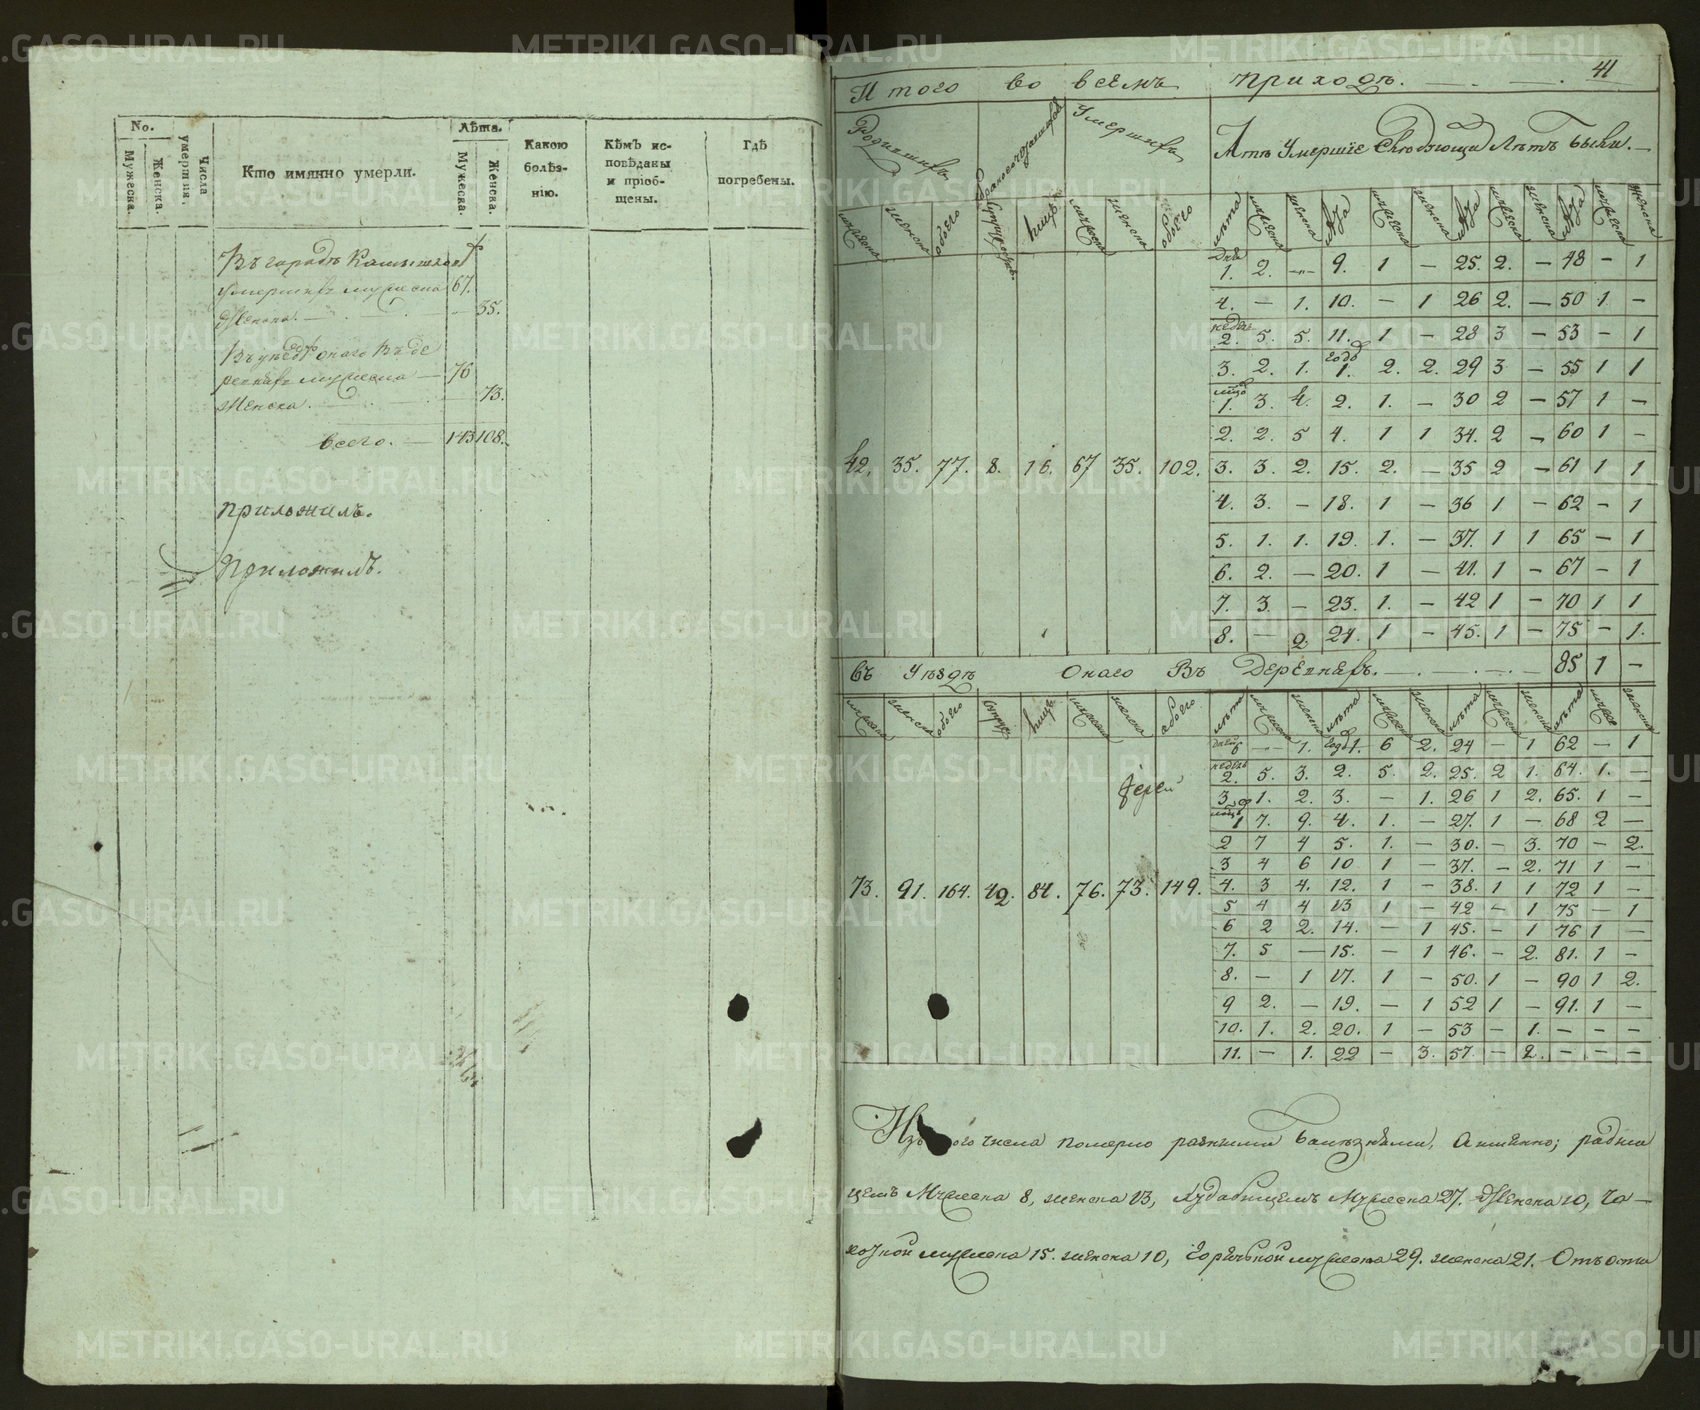 No.
Числа умершия.
Кто имянно умерли.
Лѣта.
Какою болѣзнію.
Кѣмъ исповѣданы и пріобщены.
Гдѣ погребены.
Мужеска.
Женска.
Мужеска.
Женска.
Въ городѣ Камышловѣ
умершихъ мужеска 67.
Женска. — 35.
Въ уѣздѣ онаго Въ де
ревняхъ мужеска — 76
Женска. — 73.
Всего. — 143 108.
Приложилъ.
Приложилъ.
41
Итого во всемъ приходѣ.
Родившихся
Умершихъ
Лѣтъ Умершіе Слѣдующи Лѣтъ Были.
мужеска женска обоего мужеска женска обоего лѣта мужеска женска лѣта мужеска женска лѣта мужеска женска лѣта мужеска женска
Дня 1. 2. — 9. 1 — 25. 2. — 48 — 1
4. — 1. 10. — 1 26 2. — 50 1. —
недѣль 2. 5. 5. 11. 1 — 28 3 — 53 — 1
3. 2. 1. годъ 1. 2. 2. 29 3 — 55 1 1
мѣсяцъ 1. 3. 4. 2. 1. — 30 2 — 57 1 —
2. 2. 5 4. 1 1 34. 2 — 60 1 —
42. 35. 77. 8. 16. 67 35. 102. 3. 3. 2. 15. 2. — 35 2 — 61 1 1
4. 3. — 18. 1 — 36 1 — 62 — 1
5. 1. 1. 19. 1. — 37. 1 1 65 — 1
6. 2. — 20. 1 — 41. 1 — 67 — 1
7. 3. — 23. 1. — 42 1 — 70 1 1
8. — 2. 24. 1 — 45. 1 — 75 — 1.
въ Уѣздѣ Онаго Въ Деревняхъ. — 85 1 —
дней 6 — 1. годъ 1. 6 2. 24 — 1 62 — 1
недѣль 2. 5. 3. 2. 5. 2. 25. 2 1. 64. 1. —
3. 1. 2. 3. — 1. 26 1 2. 65. 1 —
мѣсяцъ 1 7. 9. 4. 1. — 27. 1 — 68 2 —
2 7 4 5. 1. — 30. — 3. 70 — 2.
3 4 6 10 1 — 37. — 2. 71 1 —
73. 91. 164. 42. 84. 76. 73. 149. 4. 3 4. 12. 1 — 38. 1 1 72 1 —
5 4 4 13 1 — 42 — 1 75 — 1
6 2 2. 14. — 1 45. — 1 76 1 —
7. 5 — 15. — 1 46. — 2. 81. 1 —
8. — 1 17. 1 — 50. 1 — 90 1 2.
9 2. — 19. — 1 52 1 — 91. 1 —
10. 1. 2. 20. 1 — 53 — 1. — — —
11. — 1. 22 — 3. 57. — 2. — — —
Изъ того числа померло разными Болѣзнями, Аимянно; родим
цемъ Мужеска 8, женска 13, Худобищемъ Мужеска 27. Женска 10, Ча—
хоткой мужеска 15. женска 10, Горячкой мужеска 29. женска 21. Отъ оспы
METRIKI.GASO-URAL.RU